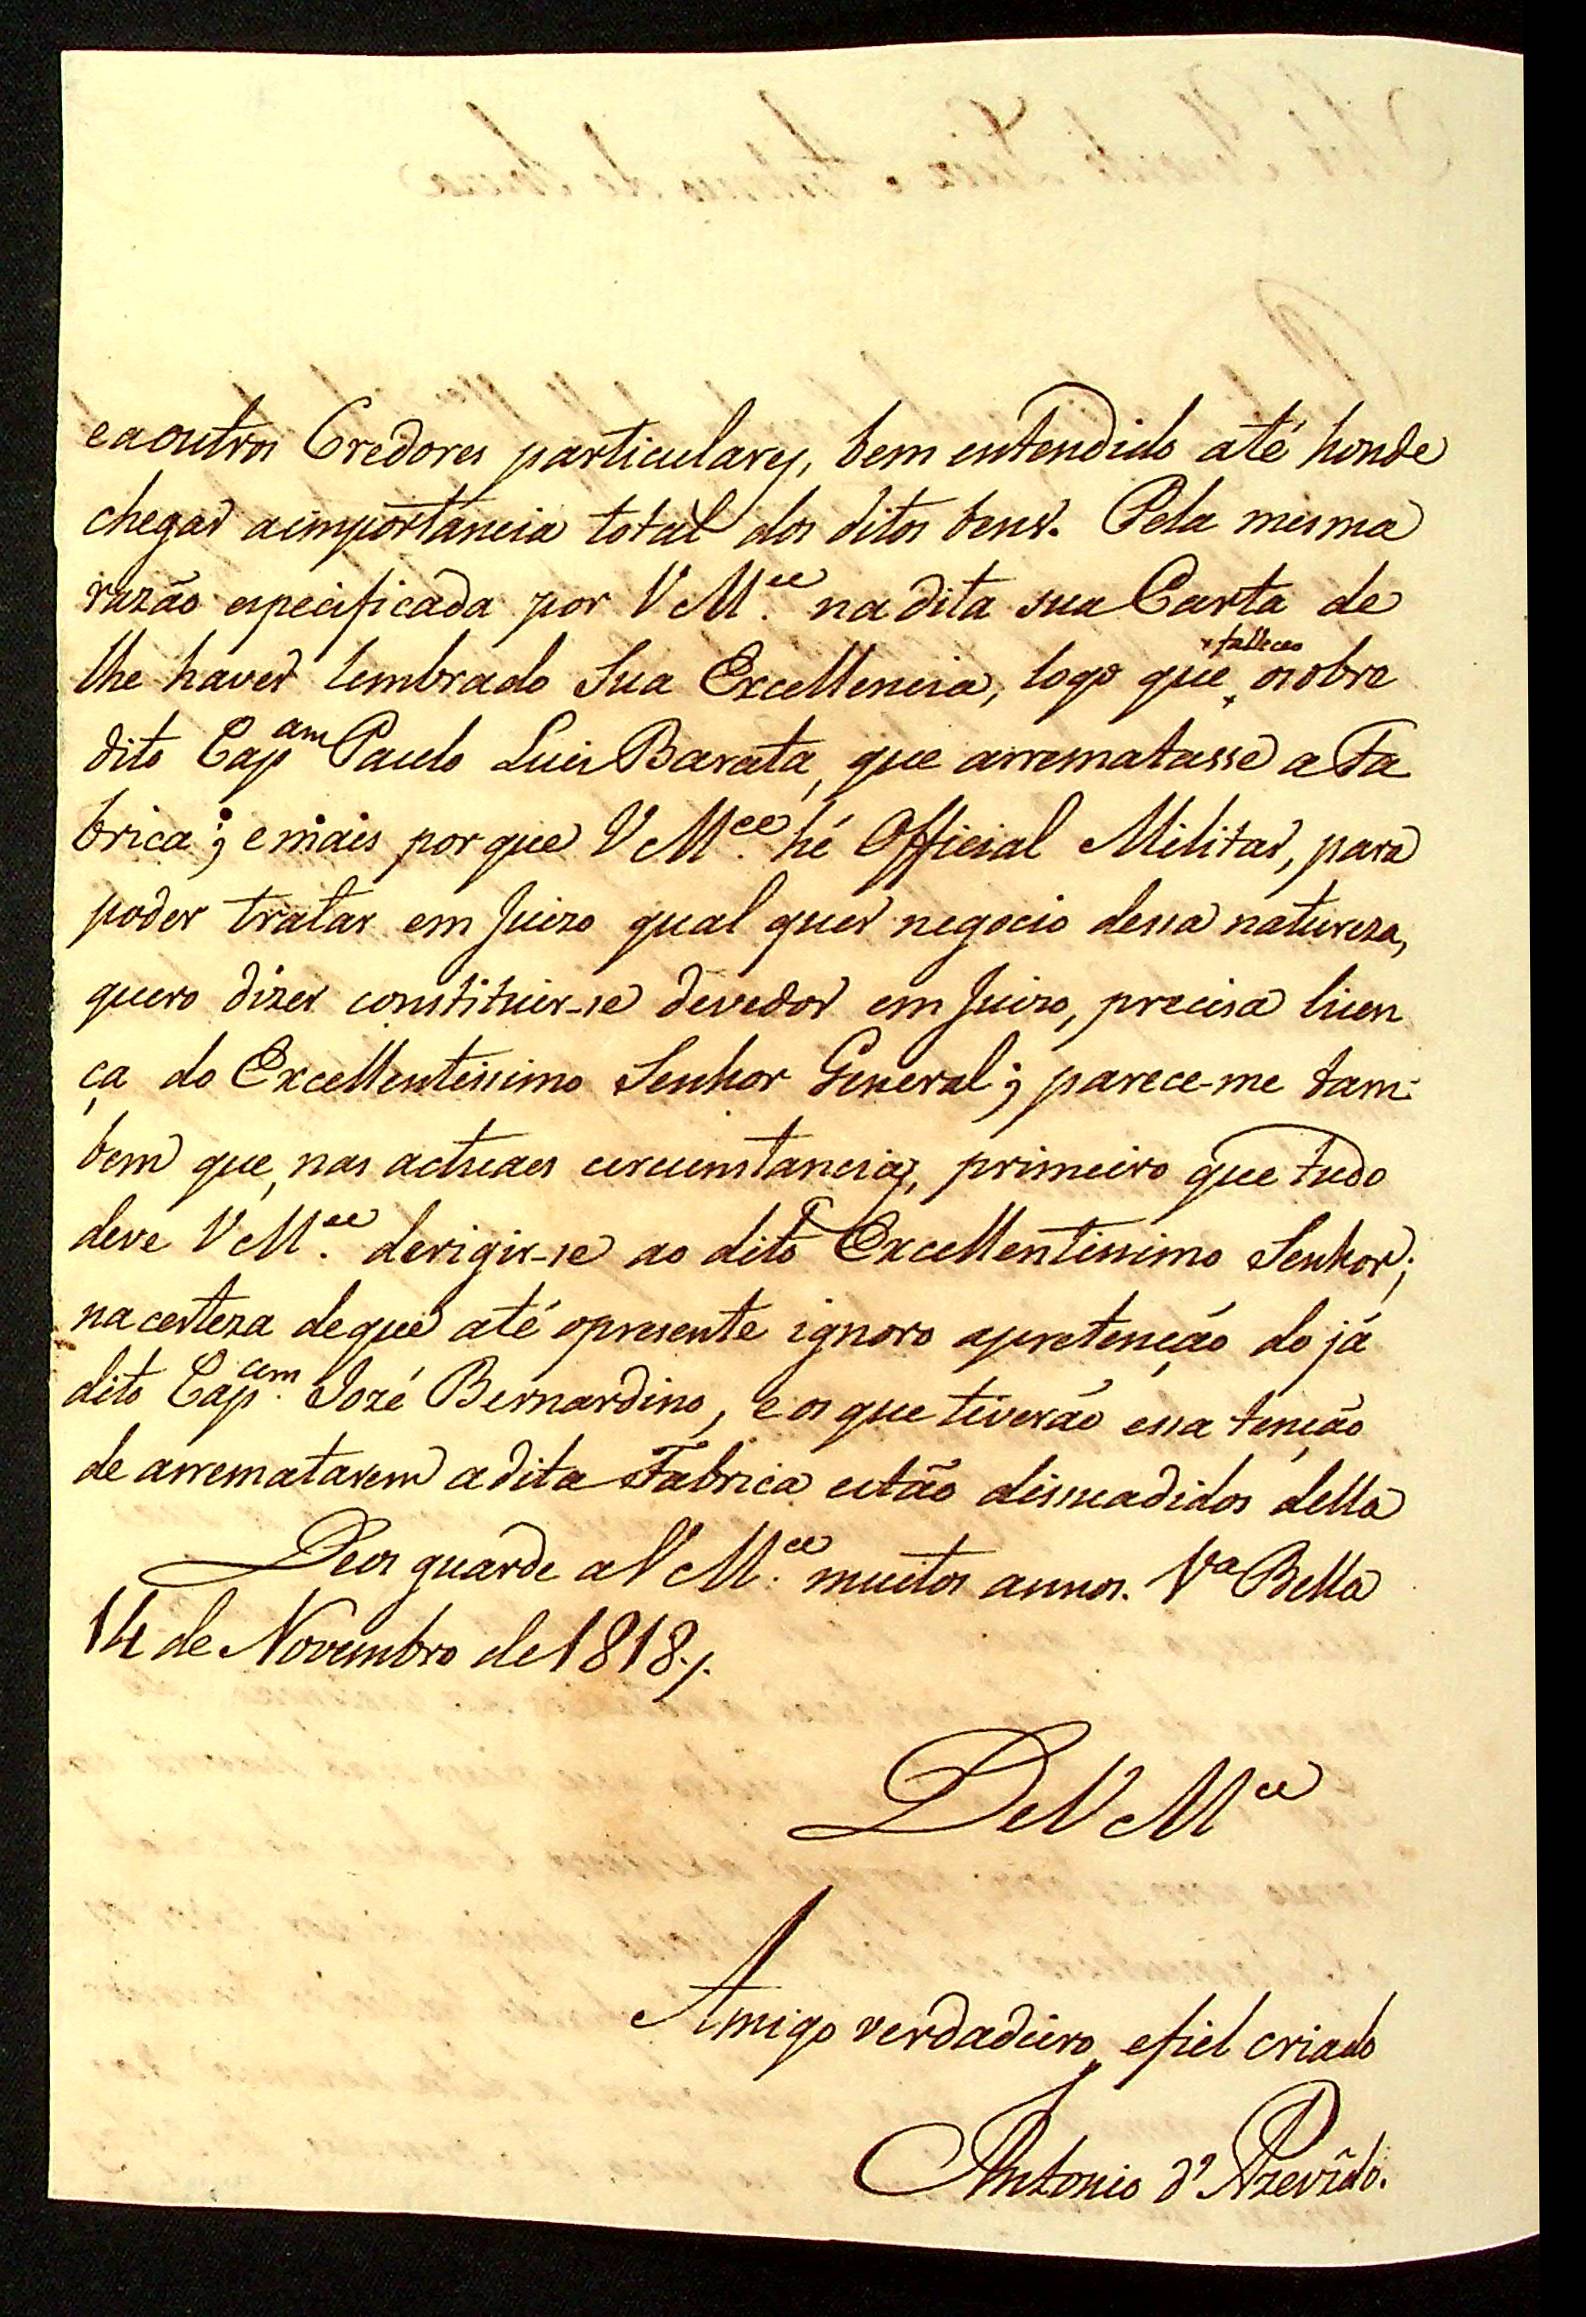 eaoutros Credores particulares, bem entendido até honde
chegar aimportancia total dos ditos bens. Pela mesma
razão especificada por VM.ce na dita sua Carta de
lhe haver lembrado Sua Excellencia, logo que falleceo osobre
dito Cap.am Paulo Luis Barata, que arrematasse a Fa
brica; emais por que VM.ce hé Official Militar, para
poder tratar em Juizo qual quer negocio dessa natureza,
quero dizer constituir-se devedor em Juizo, precisa licen
ça do Excellentissimo Senhor General; parece-me tam-
bem que, nas actuaes circunstancias, primeiro que tudo
deve VM.ce derigir-se ao dito Excellentissimo Senhor;
na certeza deque até opresente ignoro apretenção do já
dito Cap.am Jozé Bernardino, e os que tiverão essa tenção
de arrematarem adita Fabrica estão dissuadidos della
Deos guarde a VM.ce muitos annos. Va Bella
14 de Novembro de 1818./.
De VMce
Amigo verdadeiro, efiel criado
Antonio d'Azevedo.